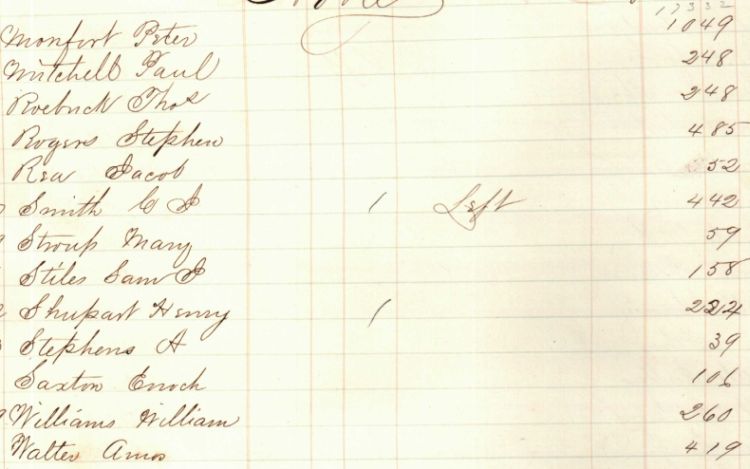 17332
Monfort Peter 1049
Mitchell Paul 248
Roebuck Thos 248
Rogers Stephen 485
Rea Jacob 52
Smith C J 1 Left 442
Stroup Mary 59
Stiles Sam J 158
Shupart Henry 1
Stephens A 39
Saxton Enoch 106
Williams William 260
Walter Amos 419